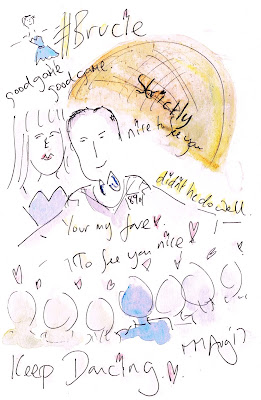 #Brucie
good game
good game
Strictly
nice to see you
didn't he do well
Your my fave
To see you nice
Keep Dancing.